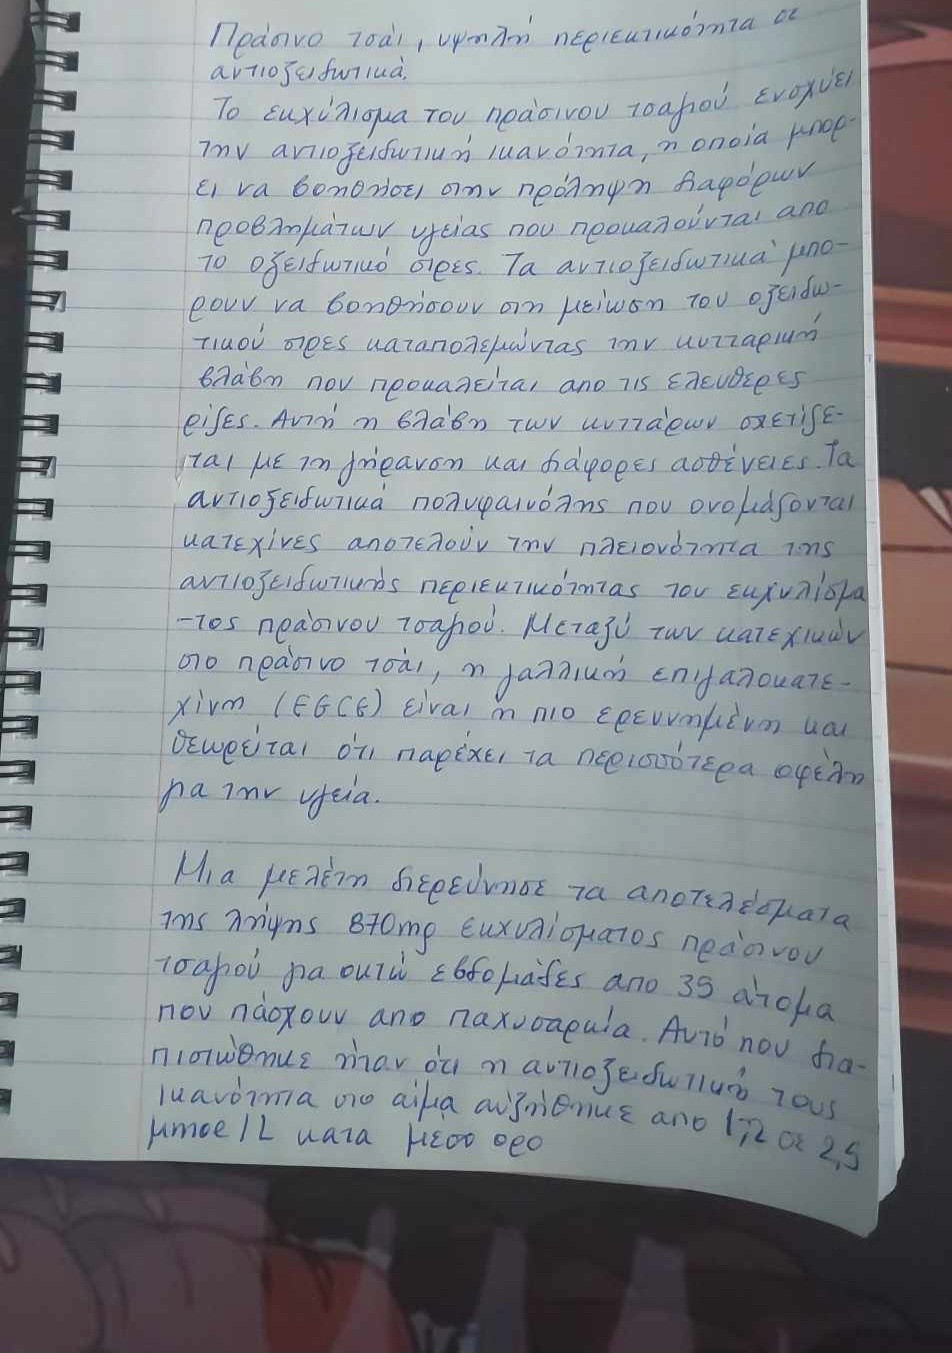 Πράσινο τσάι, υψηλή περιεκτικότητα σε
αντιοξειδωτικά.
Το εκχύλισμα του πράσινου τσαγιού ενισχύει
την αντιοξειδωτική ικανότητα, η οποία μπορ-
ει να βοηθήσει στην πρόληψη διαφόρων
προβλημάτων υγείας που προκαλούνται απο
το οξειδωτικό στρες. Τα αντιοξειδωτικά μπο-
ρουν να βοηθήσουν στη μείωση του οξειδω-
τικού στρες καταπολεμώντας την κυτταρική
βλάβη που προκαλείται απο τις ελευθερες
ρίζες. Αυτή η βλάβη των κυττάρων σχετίζε-
ται με τη γήρανση και διάφορες ασθένειες. Τα
αντιοξειδωτικά πολυφαινόλης που ονομάζονται
κατεχίνες αποτελούν την πλειονότητα της
αντιοξειδωτικής περιεκτικότητας του εκχυλίσμα
-τος πράσινου τσαγιού. Μεταξύ των κατεχικών
στο πράσινο τσάι, η γαλλική επιγαλοκατε-
χίνη (EGCG) είναι η πιο ερευνημένη και
θεωρείται ότι παρέχει τα περισσότερα οφέλη
για την υγεία.
Μια μελέτη διερεύνησε τα αποτελέσματα
της λήψης 870mg εκχυλίσματος πράσινου
τσαγιού για οκτώ εβδομάδες απο 35 άτομα
που πάσχουν απο παχυσαρκία. Αυτό που δια-
πιστώθηκε ήταν ότι η αντιοξειδωτική τους
ικανότητα στο αίμα αυξήθηκε απο 1,2 σε 2,5
μmoe/L κατα μεσο ορο